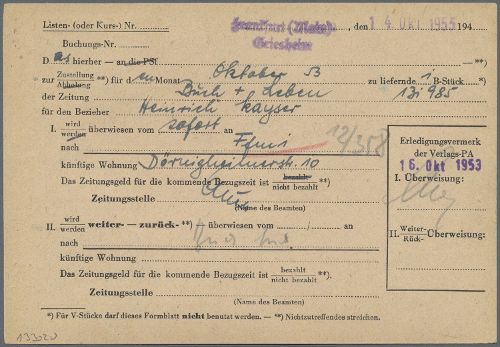 Listen- (oder Kurs-) Nr.
Frankfurt (Main)-
Griesheim
, den 14. OKT 1953 194
Buchungs-Nr.
Das hierher — an die PSt
zur Zustellung Abholung **) für den Monat Oktober 53 zu liefernde 1 B-Stück *)
der Zeitung Buch + Leben 13i985
für den Bezieher Heinrich Kayser
I. wird werden überwiesen vom sofort an
nach Ffm 1 12/358
künftige Wohnung Dörnigheimerstr. 10
Das Zeitungsgeld für die kommende Bezugszeit ist bezahlt nicht bezahlt **).
Zeitungsstelle
(Name des Beamten)
Erledigungsvermerk
der Verlags-PA
16. OKT 1953
I. Überweisung:
II. Weiter- Rück- Überweisung:
II. wird werden weiter— zurück- **) überwiesen vom / an
nach
künftige Wohnung
Das Zeitungsgeld für die kommende Bezugszeit ist bezahlt nicht bezahlt **).
Zeitungsstelle
(Name des Beamten)
*) Für V-Stücke darf dieses Formblatt nicht benutzt werden. — **) Nichtzutreffendes streichen.